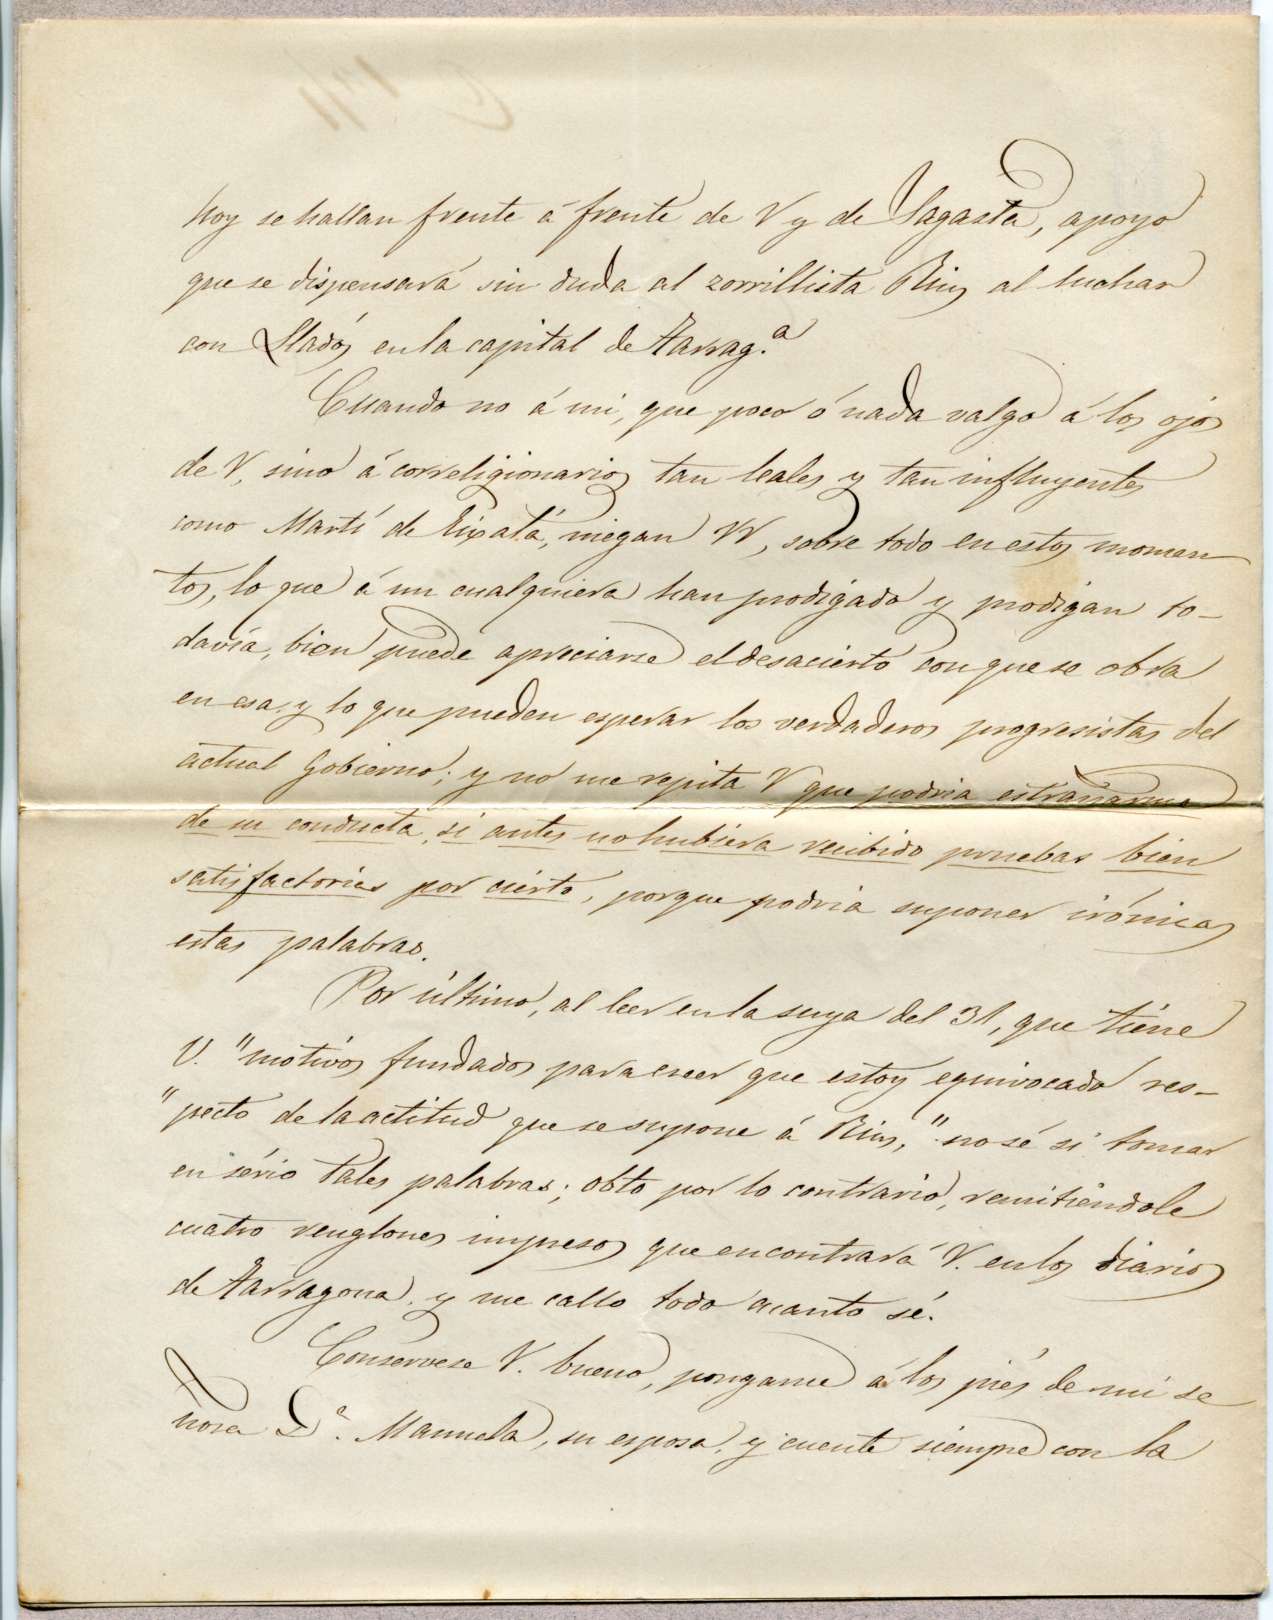 hoy se hallan frente á frente de V y de Sagasta, apoyo
que se dispensará sin duda al zorrillista Rius al luchar
con Lladós en la capital de Tarrag.ª
Cuando no á mi, que poco ó nada valgo á los ojos
de V, sino á correligionarios tan leales y tan influyentes
como Martí de Eixalá, niegan VV, sobre todo en estos momen
tos, lo que á un cualquiera han prodigado y prodigan to-
davía, bien puede apreciarse el desacierto con que se obra
en esa, y lo que pueden esperar los verdaderos progresistas del
actual Gobierno; y no me repita V que podria estrañarme
de su conducta, si antes no hubiera recibido pruebas bien
satisfactorias por cierto, porque podria suponer irónicas
estas palabras.
Por último, al leer en la suya del 31, que tiene
V. "motivos fundados para creer que estoy equivocado res-
"pecto de la actitud que se supone á Rius," no sé si tomar
en sério tales palabras; obto por lo contrario, remitiéndole
cuatro renglones impresos que encontrará V. en los diarios
de Tarragona, y me callo todo cuanto sé.
Consérvese V. bueno, pongame á los piés de mi se
ñora D.ª Manuela, su esposa, y cuente siempre con la